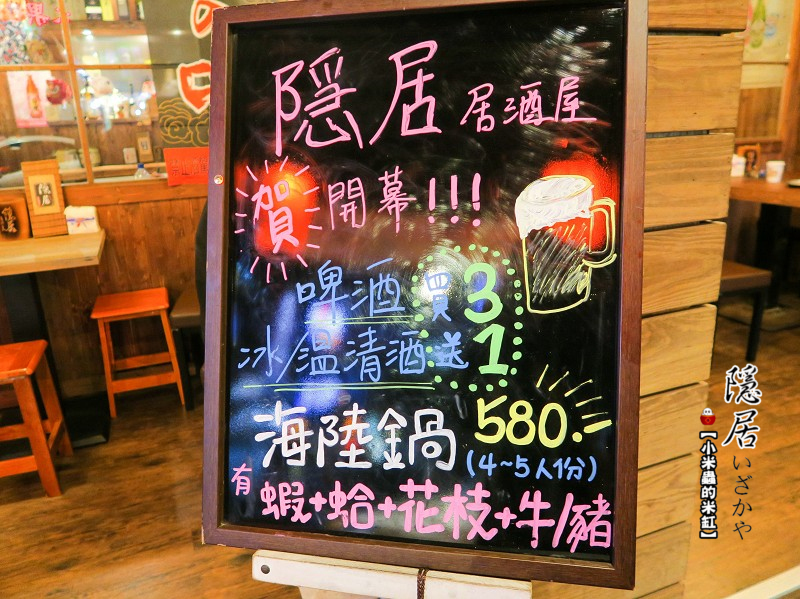 隱居 居酒屋
賀 開幕!!!
啤酒 買3
冰/溫清酒 送1
海陸鍋 580.-
(4~5人1份)
有 蝦+蛤+花枝+牛/豬
隱居
隱居いざかや
【小米蟲的米缸】